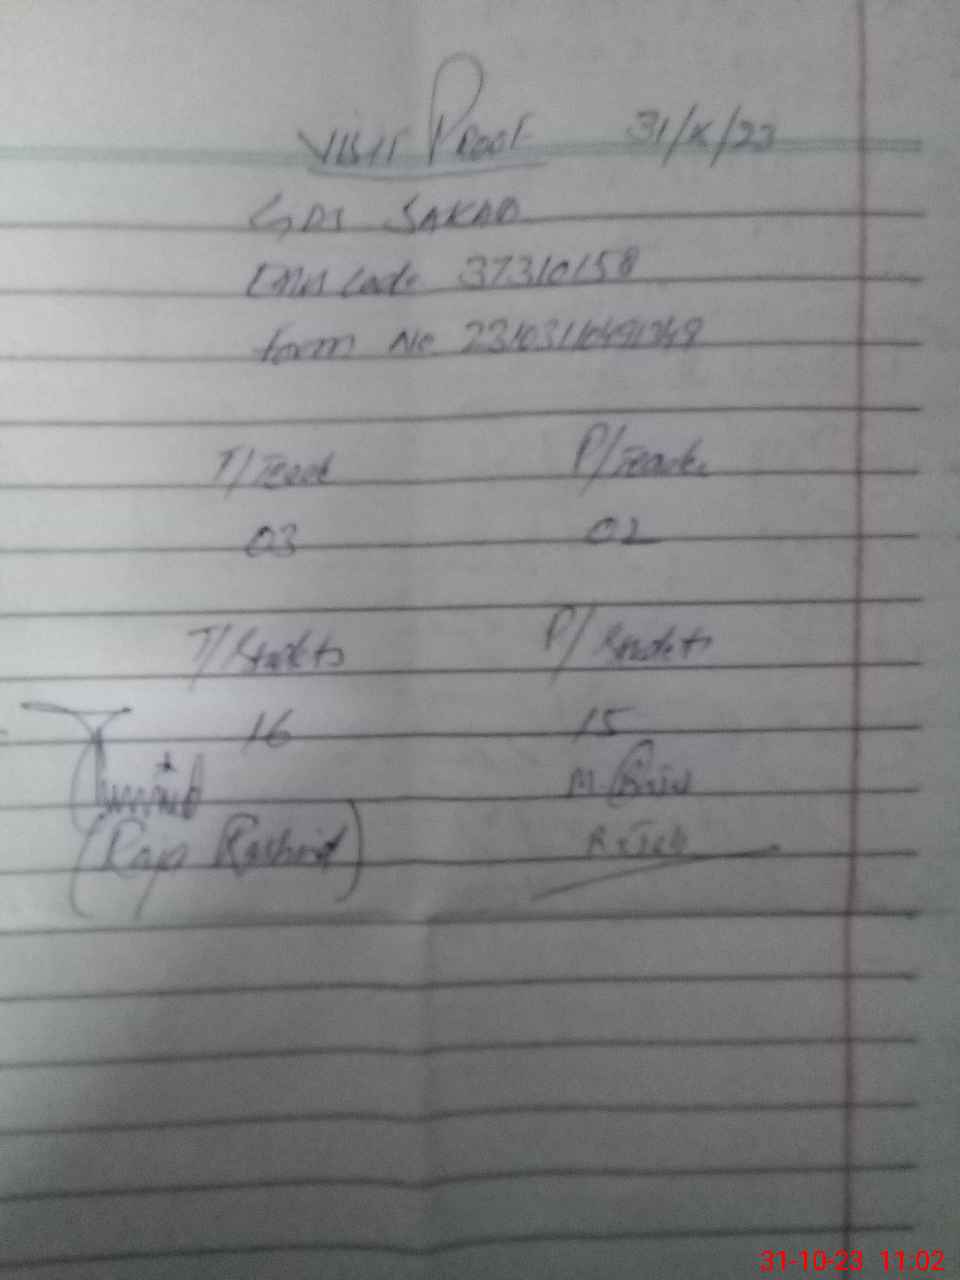 Visit Proof 31/X/23
GPS SAKAD
EMIS Code 37310158
form No
T/Teach P/Teach
03 02
T/Students P/Students
16 15
(Raja Rashid)
31-10-23 11:02